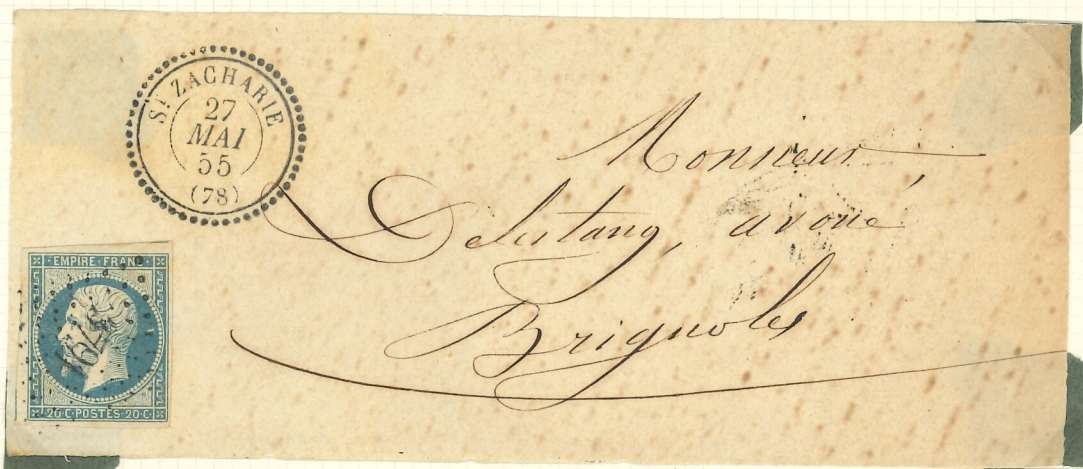 St ZACHARIE
27
MAI
55
(78)
Monsieur
Delestang, avoué
Brignoles
EMPIRE FRANC
20·C·POSTES·20·C·